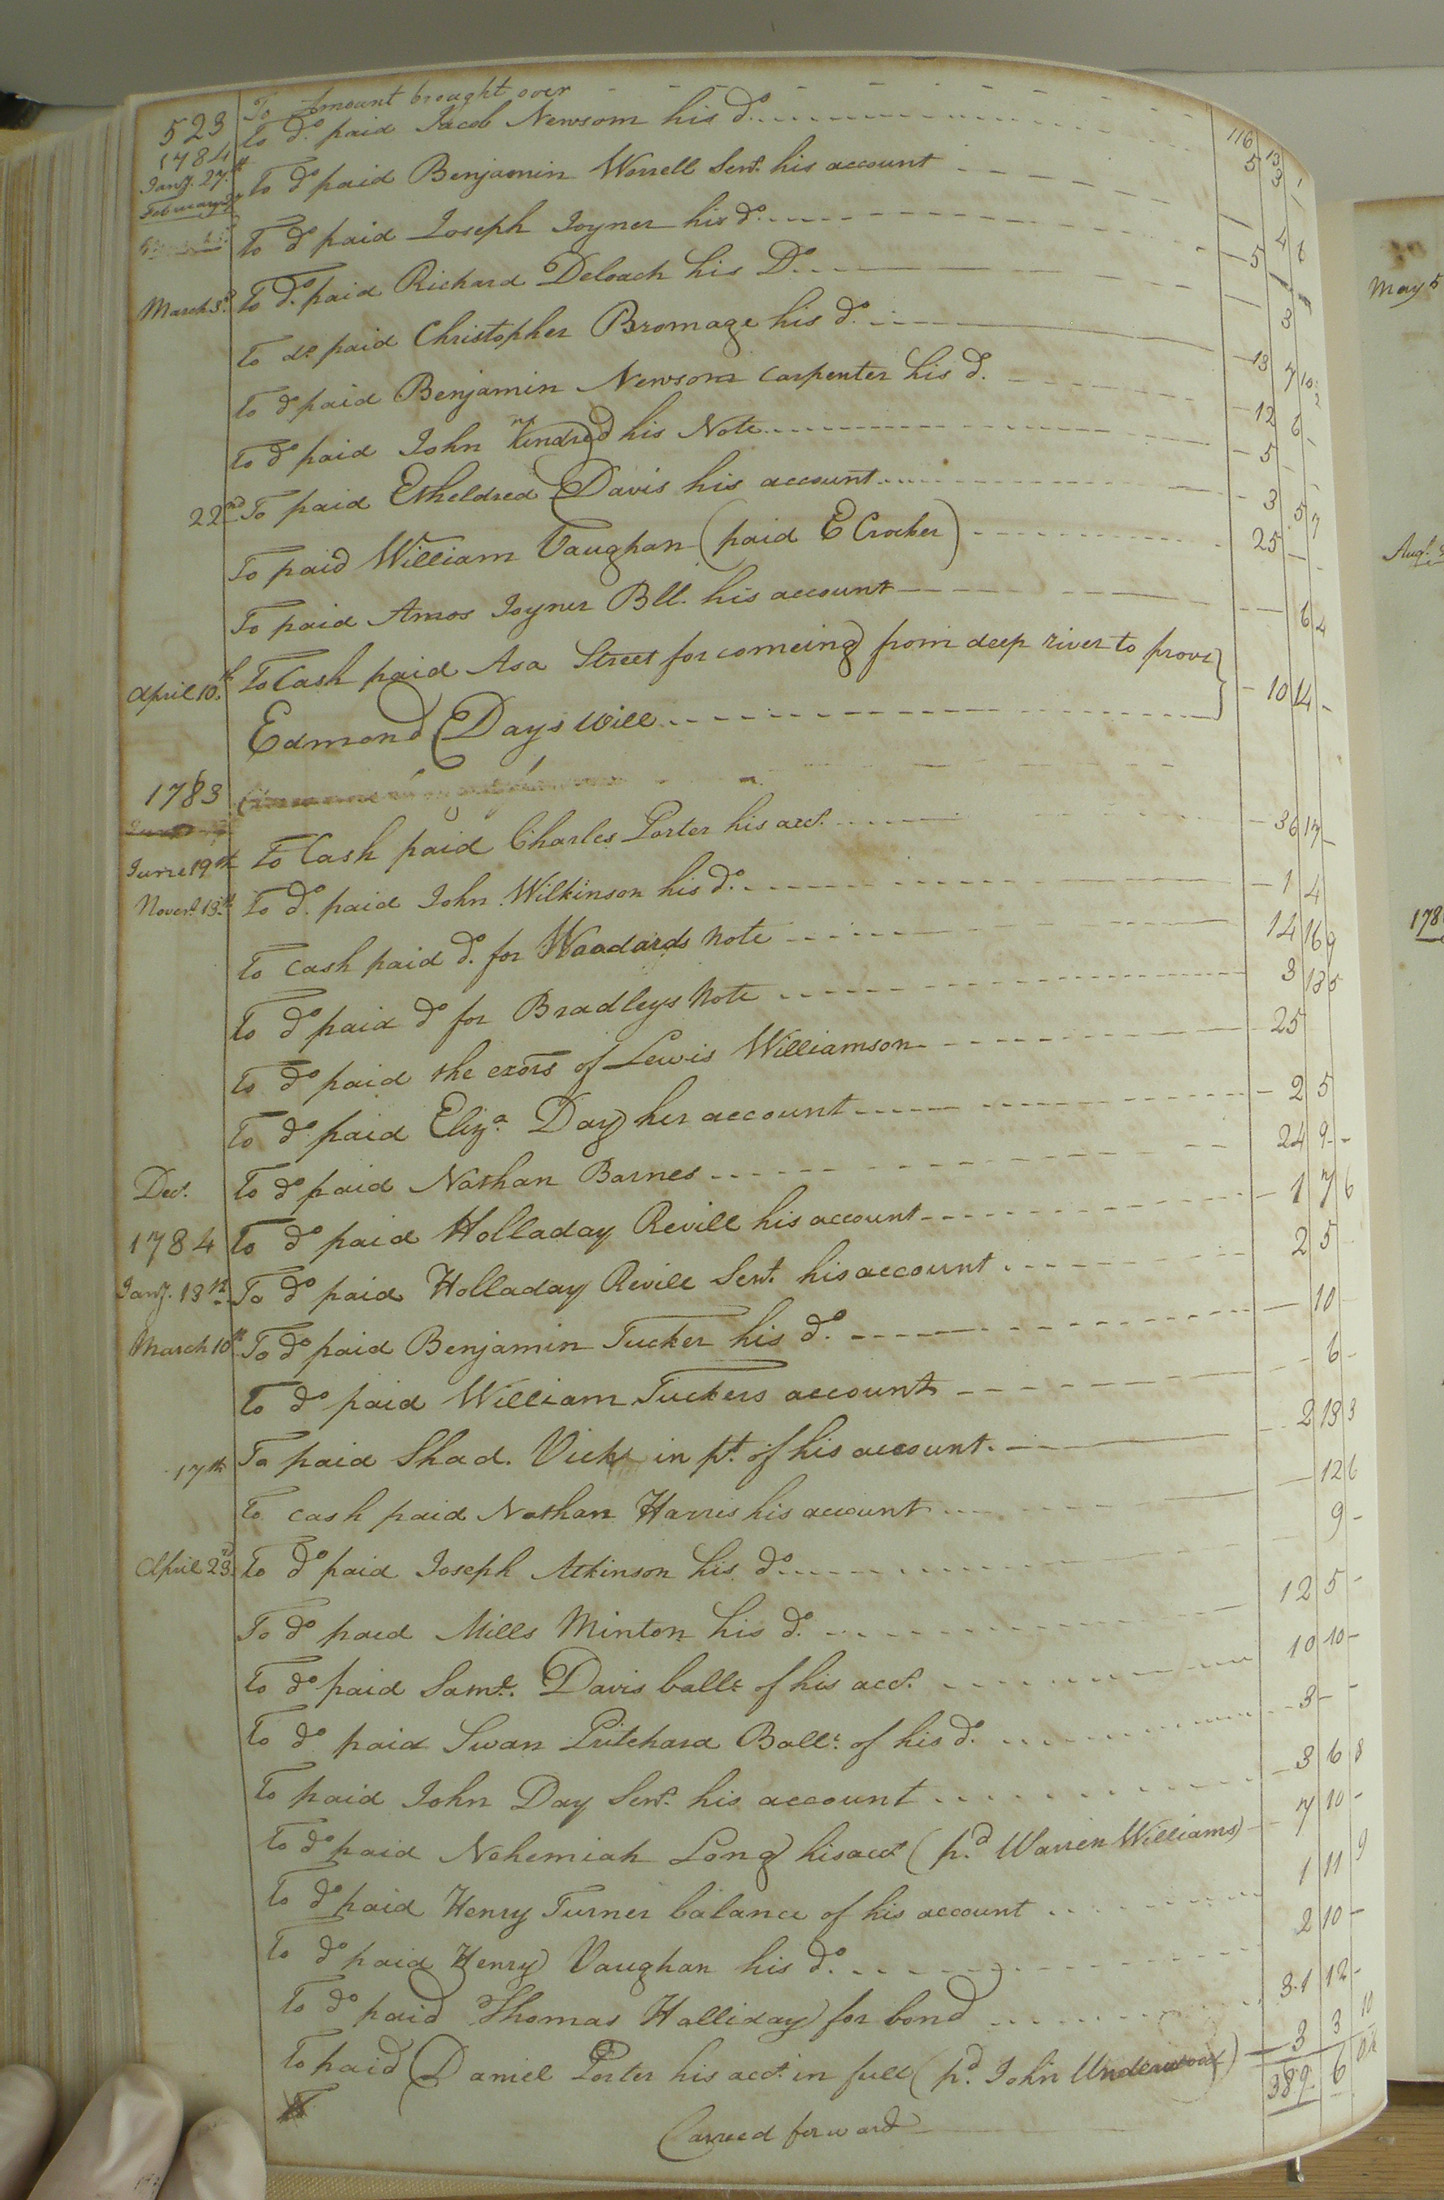 523
To Amount brought over 116 13 1
1784 To do paid Jacob Newsom his do 5 3 -
Jany. 27th To do paid Benjamin Worrell Senr. his account - 4 6
February
To do paid Joseph Joyner his do 5 - -
March 3d To do paid Richard Deloach his Do - 3
To do paid Christopher Bromage his do 13 7 10 1/2
To do paid Benjamin Newsom carpenter his do 12 6 -
To do paid John Kindred his Note 5 - -
22nd To paid Etheldred Davis his account 3 5 7
To paid William Vaughan (paid E Crocker) 25 - -
To paid Amos Joyner Bll. his account - 6 4
April 10th To Cash paid Asa Street for comeing from deep river to prove }
Edmond Days will 10 14 -
1783
June 19th To Cash paid Charles Porter his acct. 36 17 -
Nover. 13th To do paid John Wilkinson his do 1 4
To cash paid do for Woodards note 14 16 9
To do paid do for Bradleys Note 3 13 5
To do paid the exors of Lewis Williamson 25
To do paid Eliza Day her account 2 5
Decr. To do paid Nathan Barnes 24 9 -
1784 To do paid Holladay Revill his account 1 7 6
Jany. 13th To do paid Holladay Revill Senr. his account 2 5
March 10th To do paid Benjamin Tucker his do - 10
To do paid William Tuckers account - 6 -
17th To paid Shad. Vick in pt. of his account 2 13 3
To cash paid Nathan Harris his account - 12 6
April 23d To do paid Joseph Atkinson his do 9 -
To do paid Mills Minton his do 12 5 -
To do paid Saml. Davis balle. of his acct. 10 10 -
To do paid Swan Pritchard Balle. of his do 3 - -
To paid John Day Senr. his account 3 6 8
To do paid Nehemiah Long his acct (pd Warren Williams) 7 10 -
To do paid Henry Turner balance of his account 1 11 9
To do paid Henry Vaughan his do 2 10 -
To do paid Thomas Halliday for bond 31 12 -
To paid Daniel Porter his acct. in full (pd John Underwood) 3 3 10
389 6
Carried forward
May 5
Augt.
178